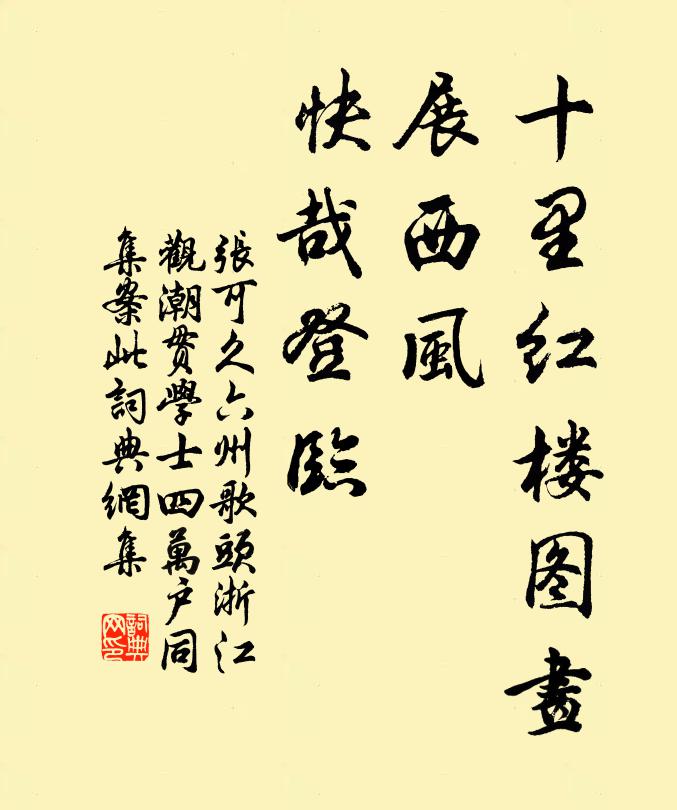 十里红楼图畫
展西風
快哉登臨
張可久六州歌頭浙江
觀潮贯學士四萬户同
集案此詞典網集
詞典网印